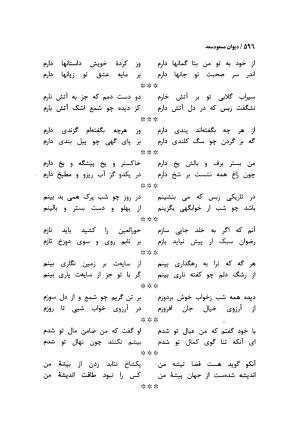 ۵۹۶ / دیوان مسعودسعد
از خود به تو من بتا گمانها دارم    وز کردهٔ خویش داستانها دارم
اندر سر صحبت تو جانها دارم    بر مایه عشق تو زیانها دارم
***
سیراب گلابی تو بر آتش خارم    دو دست دمم که جز به آتش نارم
نشگفت زبس که در دل آتش دارم    کز دیده چو شمع اشک آتش بارم
***
از هر چه بگفته‌اند پندی دارم    وز هرچه بگفته‌ام گزندی دارم
گه بر گردن چو سگ کلندی دارم    بر پای گهی چو پیل بندی دارم
***
من بستر برف و بالش یخ دارم    خاکستر و یخ پیشگه و یخ دارم
چون زاغ همه نشست بر شخ دارم    در یکدو گز آب ریز و مطبخ دارم
***
در تاریکی زبس که می بنشینم    در روز چو شب پرک همی بد بینم
باشد چو شب ار خوابگهی بگزینم    از پهلو و دست بستر و بالینم
***
آنم که اگر به خلد جایی سازم    حورالعین را کشید باید نازم
رضوان سبک ار پیش نیاید بازم    بر تابم روی و سوی دوزخ تازم
***
هر گه که ترا به رهگذاری بینم    از سایه‌ت بر زمین نگاری بینم
از رشگ دلم چو کفته ناری بینم    گر با تو جز از سایه‌ت یاری بینم
***
دیده همه شب زخواب خوش بردوزم    بر تن گریم چو شمع و از دل سوزم
از آرزوی خیال جان افروزم    در آرزوی خواب شبی تا روزم
***
با خود گفتم که من عیال تو شدم    او گفت که من ضامن مال تو شدم
ای آنکه ثنا گوی کمال تو شدم    بیشم نکنند چون نهال تو شدم
***
آنگو گوید هست قضا تیشه من    یکشاخ نتاند زدن از بیشهٔ من
اندیشه شدست از جهان پیشهٔ من    کس را نبود طاقت اندیشهٔ من
***